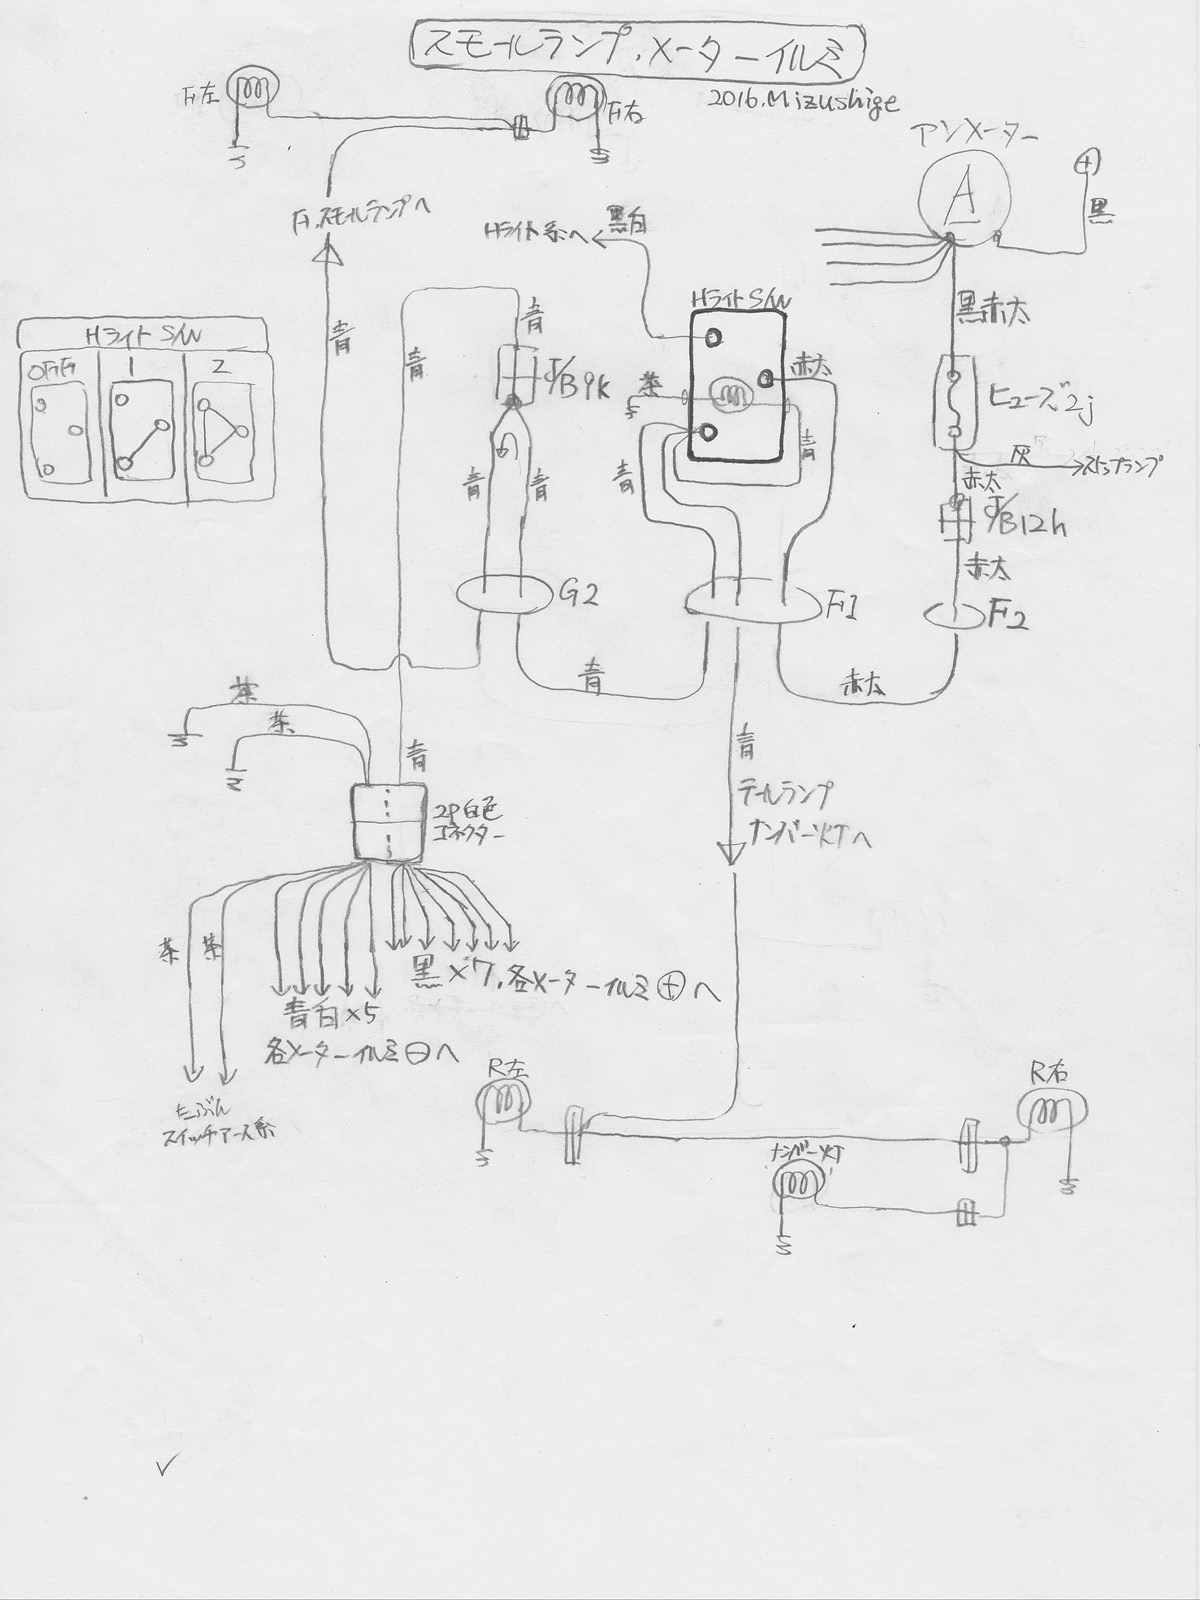 スモールランプ.メーターイルミ
2016.Mizushige
F左
F右
アンメーター
A
+
黒
F.スモールランプへ
Hライト系へ
黒白
HライトS/W
HライトS/W
OFF
1
2
青
青
青
J/B9k
茶
赤太
青
黒赤太
ヒューズ2j
灰
ストップランプ
赤太
J/B12h
赤太
青
青
青
G2
F1
F2
青
赤太
茶
茶
青
2P白色
コネクター
青
テールランプ
ナンバー灯へ
茶
茶
黒×7.各メーターイルミ⊕へ
青白×5
各メーターイルミ⊖へ
たぶん
スイッチアース系
R左
R右
ナンバー灯